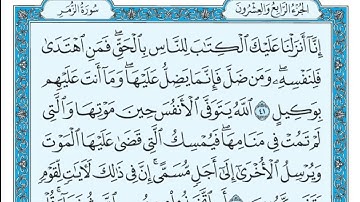 الجزء الرابع والعشرون سورة الزمر
إِنَّا أَنزَلْنَا عَلَيْكَ ٱلْكِتَٰبَ لِلنَّاسِ بِٱلْحَقِّ ۖ فَمَنِ ٱهْتَدَىٰ
فَلِنَفْسِهِۦ ۖ وَمَن ضَلَّ فَإِنَّمَا يَضِلُّ عَلَيْهَا ۖ وَمَآ أَنتَ عَلَيْهِم
بِوَكِيلٍ ٤١ ٱللَّهُ يَتَوَفَّى ٱلْأَنفُسَ حِينَ مَوْتِهَا وَٱلَّتِى
لَمْ تَمُتْ فِى مَنَامِهَا ۖ فَيُمْسِكُ ٱلَّتِى قَضَىٰ عَلَيْهَا ٱلْمَوْتَ
وَيُرْسِلُ ٱلْأُخْرَىٰٓ إِلَىٰٓ أَجَلٍ مُّسَمًّى ۚ إِنَّ فِى ذَٰلِكَ لَءَايَٰتٍ لِّقَوْمٍ